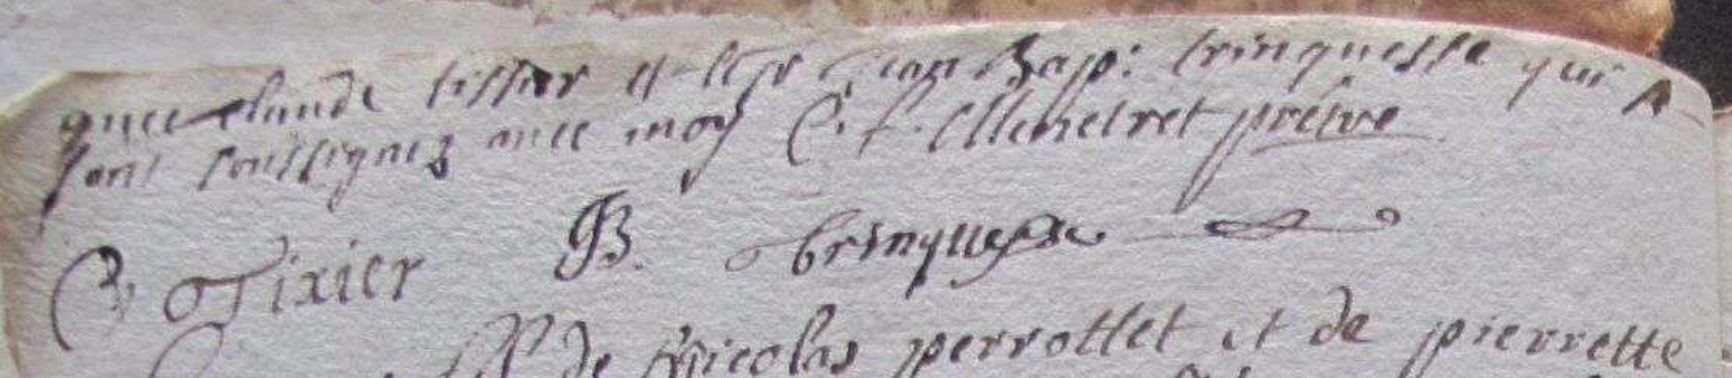 avec claude tissier et le sr Jean Bap: trinquesse qui se
sont soussignez avec moy C. f. prêtre
C, Tixier JB. trinquesse
de Nicolas perrottet et de pierrette